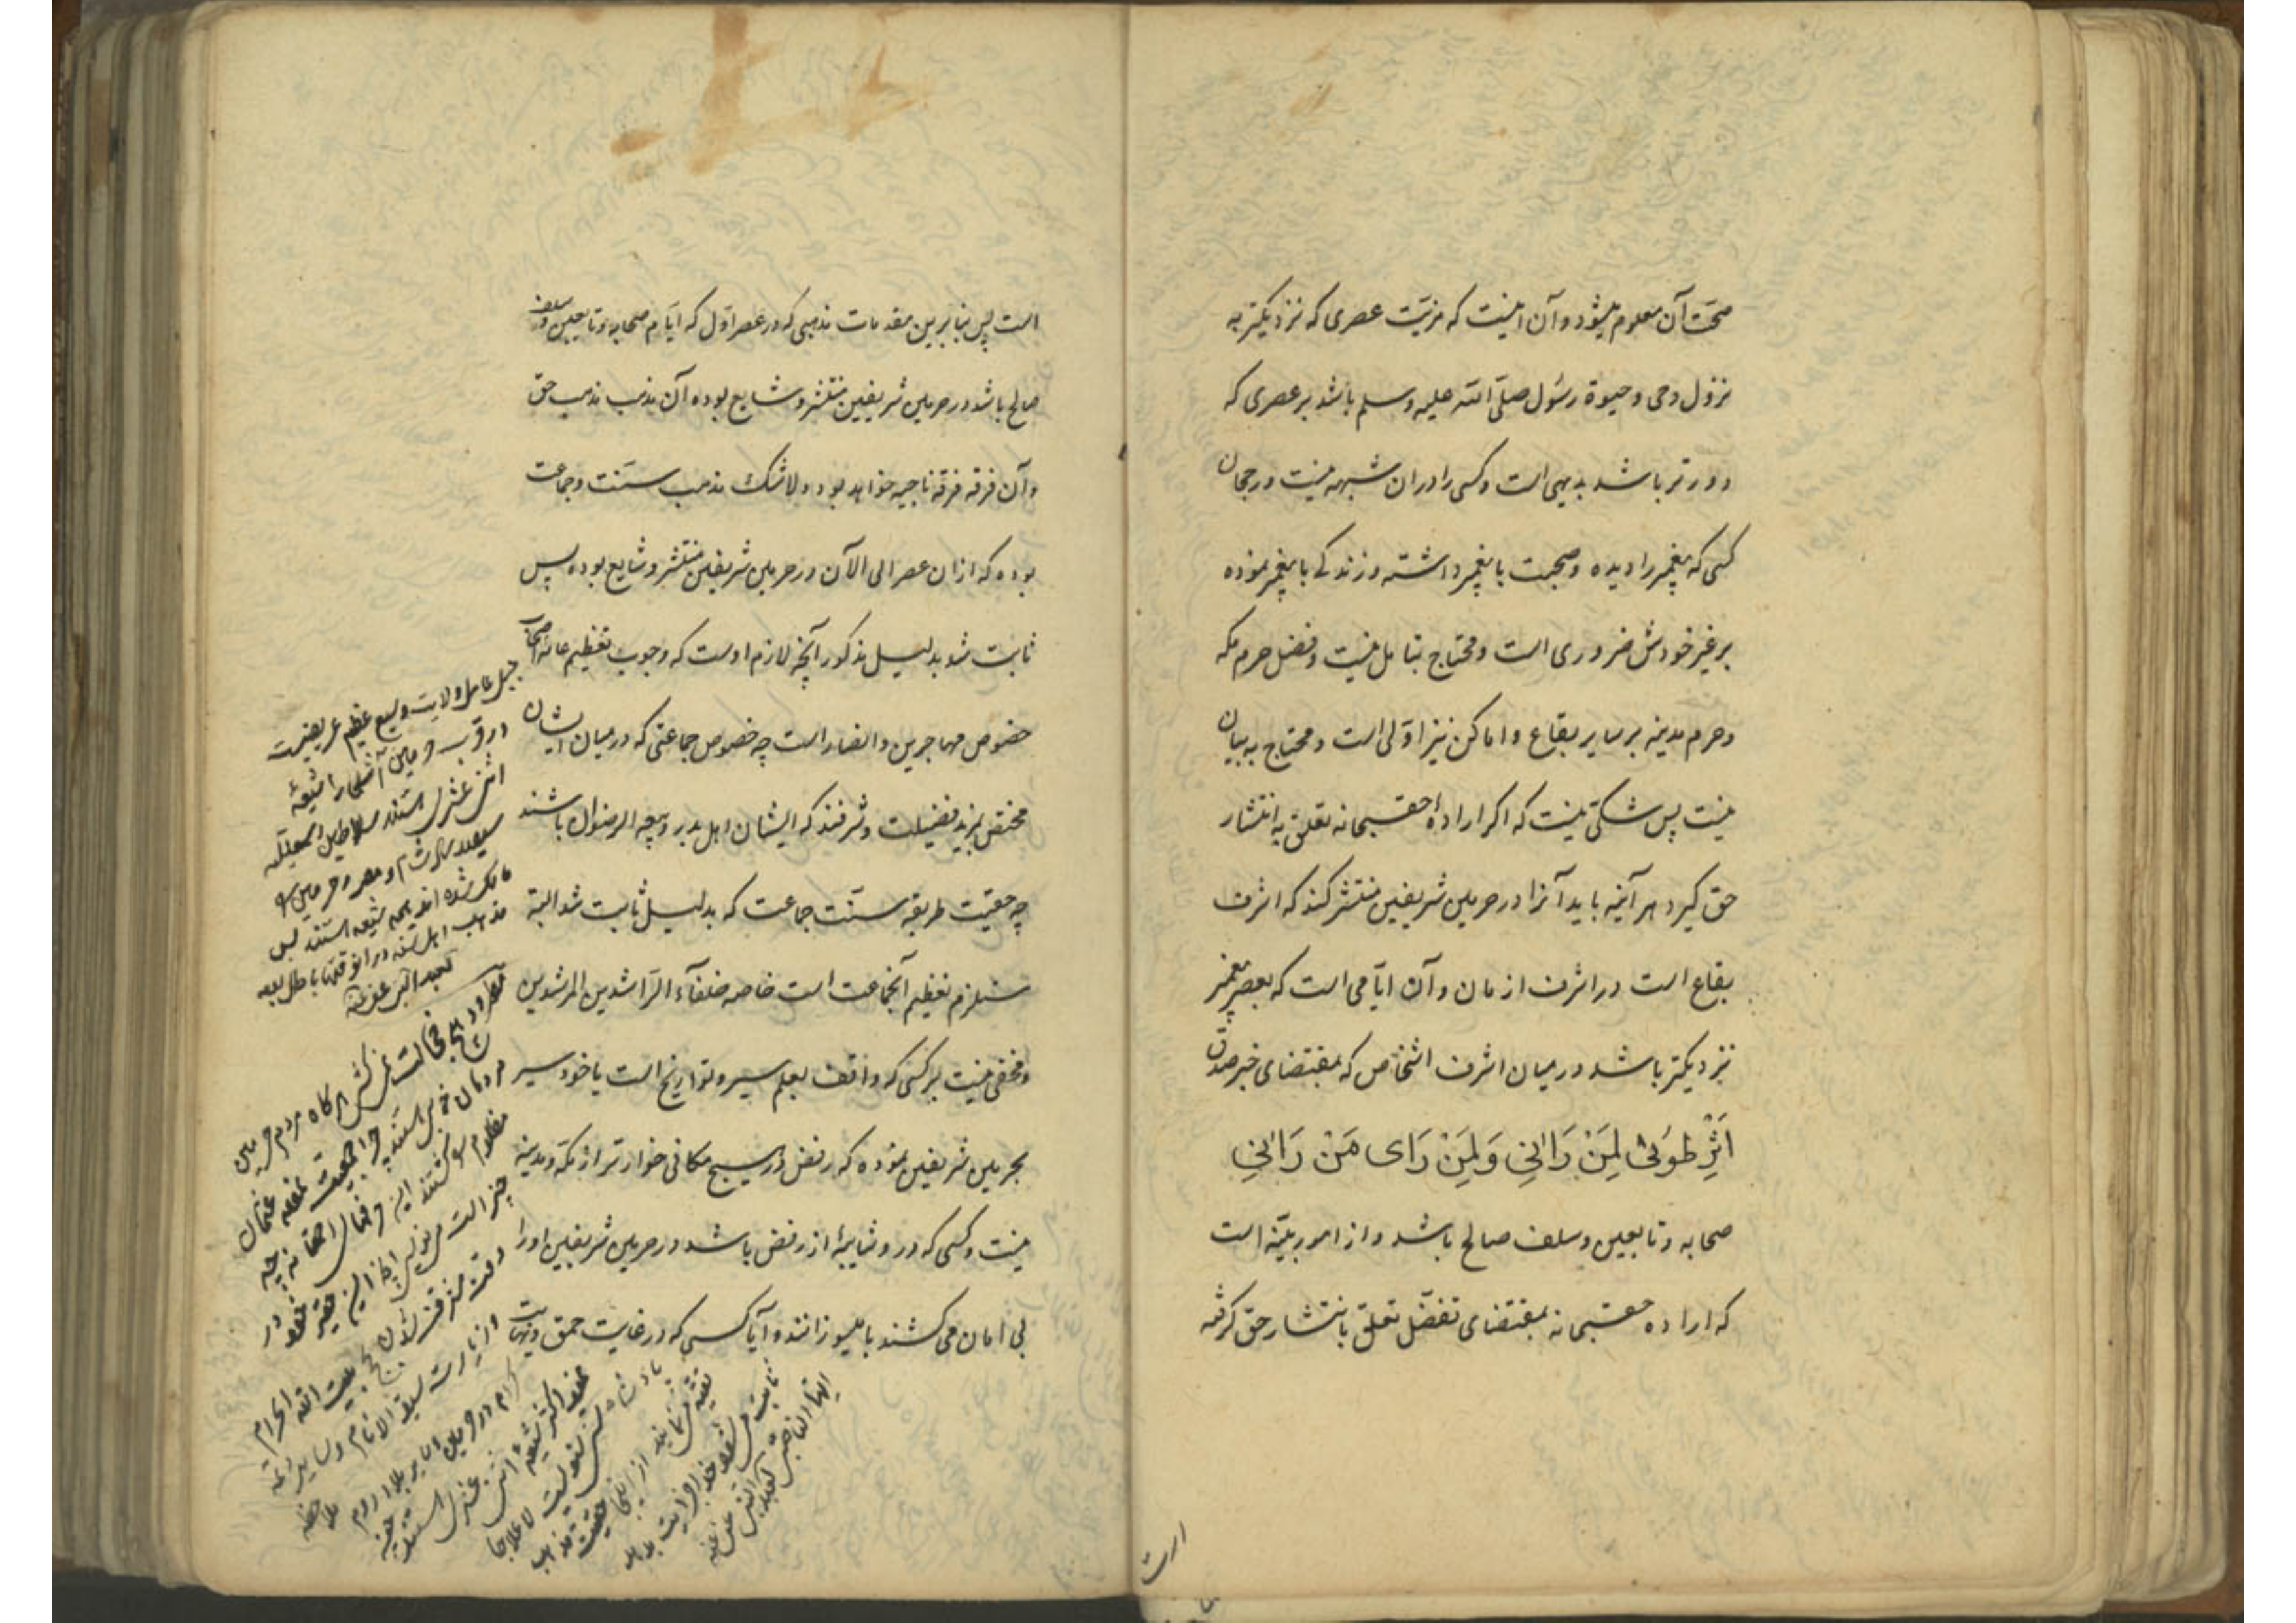 صحّت آن معلوم میشود و آن اینست که مزیّت عصری که نزدیکتر به
نزول وحی و حیوة رسُول صلّی الله علیه وسلم باشد بر عصری که
دورتر باشد بدیهی است و کسی را در ان شبهه نیست و رجحان
کسی که پیغمبر را دیده و صحبت با پیغمبر داشته و زندکی با پیغمبر نموده
بر غیر خودش ضروری است و محتاج بتامل نیست و فضل حرم مکه
و حرم مدینه بر سایر بقاع و اماکن نیز اوّلی است و محتاج به بیان
نیست پس شکّی نیست که اکر ارادهٔ حقسبحانه تعلق به انتشار
حق کیرد هر آینه باید آنرا در حرمین شریفین منتشر کند که اشرف
بقاع است در اشرف ازمان و آن ایّامی است که بعصر پیغمبر
نزدیکتر باشد در میان اشرف اشخاص که بمقتضای خبر صدق
اَثَرِ طُوبیٰ لِمَنْ رَاٰنِی وَلِمَنْ رَای مَنْ رَاٰنِی
صحابه و تابعین و سلف صالح باشد و از امور بیّنه است
که اراده حقسبحانه بمقتضای تفضّل تعلق بانتشار حق کرفته
است پس بنابرین مقدمات مذهبی که در عصر اوّل که ایّام صحابه و تابعین و سلف
صالح باشد در حرمین شریفین منتشر و شایع بوده آن مذهب مذهب حق
و آن فرقه فرقه ناجیه خواهد بود و لاشک مذهب سنّت و جماعت
بوده که از ان عصر الی الآن در حرمین شریفین منتشر و شایع بوده پس
ثابت شد بدلیل مذکور آنچه لازم اوست که وجوب تعظیم عامه اصحاب
خصوص مهاجرین و انصار است چه خصوص جماعتی که در میان ایشان
مختص بمزید فضیلت و شرفند که ایشان اهل بدر و بیعه الرضوان باشند
چه حقیّت طریقه سنّت جماعت که بدلیل ثابت شد البته
مستلزم تعظیم آنجماعت است خاصه خلفآء الرّاشدین المرشدین
و مخفی نیست بر کسی که واقف بعلم سیر و تواریخ است یا خود سیر
بحرمین شریفین نموده که رفض در هیچ مکانی خوارتر از مکّه و مدینه
نیست و کسی که در و شایبهٔ از رفض باشد در حرمین شریفین او را
بی امان می کشند یا میسوزانند و آیا کسی که در غایت حمق و نهایت
جبل عامل ولایت وسیع عظیم عریضیست
در قرب حرمین آشکارا شیعهٔ
اثنی عشری استند سلاطین اسمعیلیه
مالک شده اند همه شیعه استند پس
مذهب اهل سنه در انوقتها باطل بوده
هرکاه مردم حرمین
مردمان خوبی استند چرا
مظلوم
حج بیت الله الحرام
و زیارت سید الانام و سایر ائمه
کرام در حرمین
اکثر شیعهٔ اثنی عشری استند
تقیه مینمایند از اینجا حقیت مذهب
ثابت میشود خدا هدایت بدهد
ایها الناصب